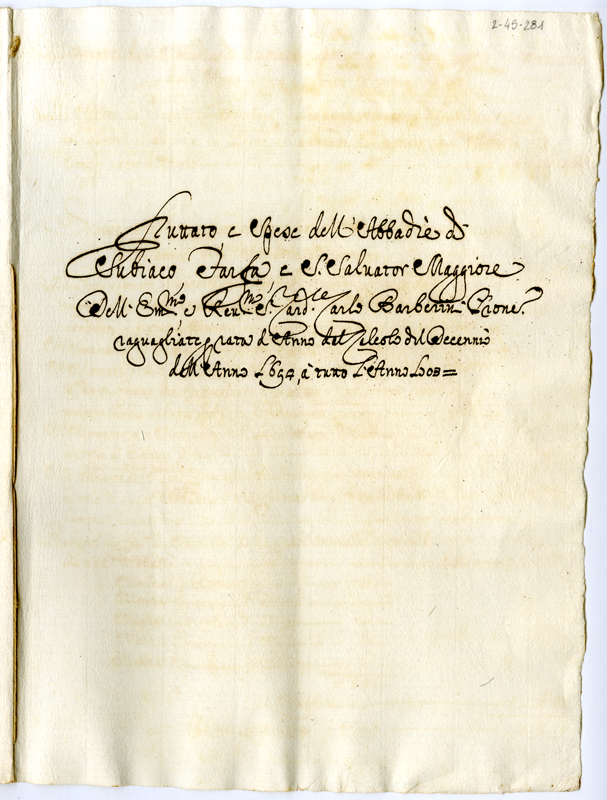 2-45-281
Fruttato e Spese dell' Abbadie di
Subiaco Farfa e S. Salvator Maggiore
Dell' Em.mo e Rev.mo S. Card.le Carlo Barberin Prone.
ragguagliate rata d'Anno del Calcolo del Decennio
dell' Anno 1694, à tutto l'Anno 1703=